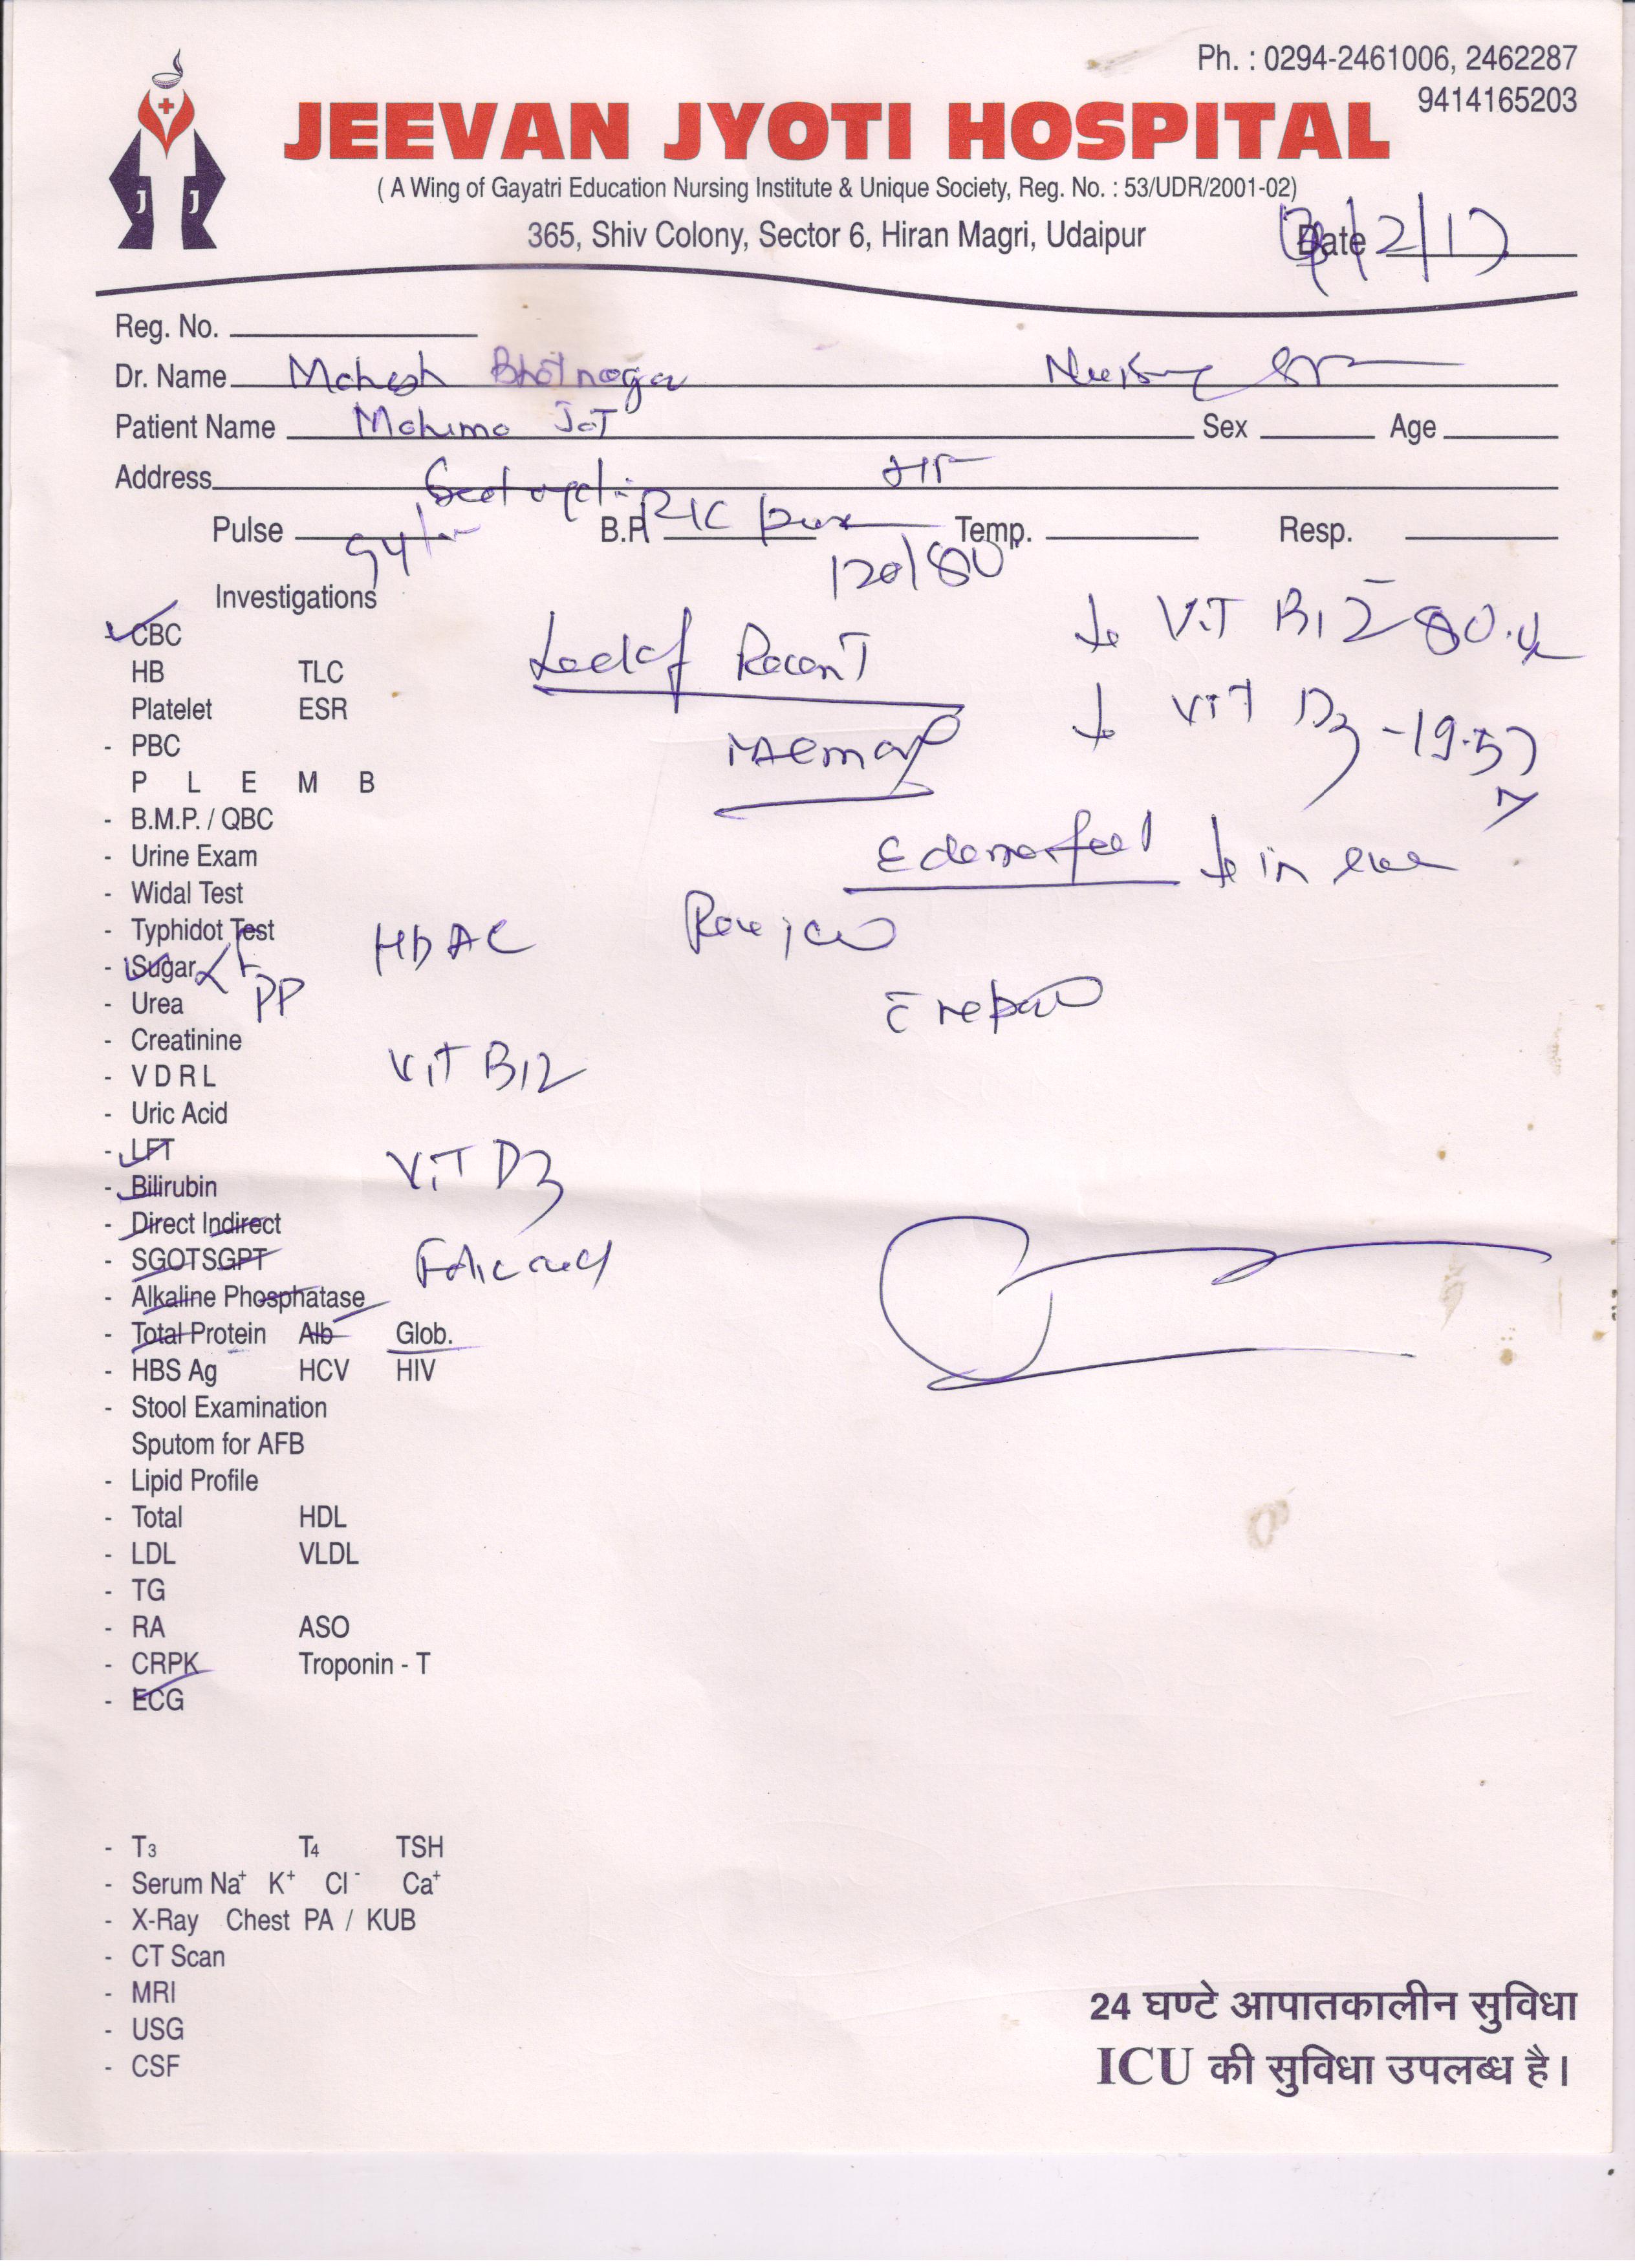 Ph. : 0294-2461006, 2462287
9414165203
JEEVAN JYOTI HOSPITAL
( A Wing of Gayatri Education Nursing Institute & Unique Society, Reg. No. : 53/UDR/2001-02)
365, Shiv Colony, Sector 6, Hiran Magri, Udaipur
Date /2/17
J J
Reg. No.
Dr. Name Mahesh Bhatnagar
Patient Name Mahima Sex Age
Address
Pulse 94/ B.P. Temp. Resp.
120/80
Investigations
CBC
HB TLC
Platelet ESR
- PBC
P L E M B
- B.M.P. / QBC
- Urine Exam
- Widal Test
- Typhidot Test
- Sugar F
PP
- Urea
- Creatinine
- V D R L
- Uric Acid
- LFT
- Bilirubin
- Direct Indirect
- SGOTSGPT
- Alkaline Phosphatase
- Total Protein Alb Glob.
- HBS Ag HCV HIV
- Stool Examination
Sputom for AFB
- Lipid Profile
- Total HDL
- LDL VLDL
- TG
- RA ASO
- CRPK Troponin - T
- ECG
- T3 T4 TSH
- Serum Na+ K+ Cl- Ca+
- X-Ray Chest PA / KUB
- CT Scan
- MRI
- USG
- CSF
VIT B12
VIT D3
Folic acid
Lack of Recent
Memory
↓ VIT B12 80.4
↓ VIT D3 - 19.57
Edema feet ↓ in
Review
24 घण्टे आपातकालीन सुविधा
ICU की सुविधा उपलब्ध है।